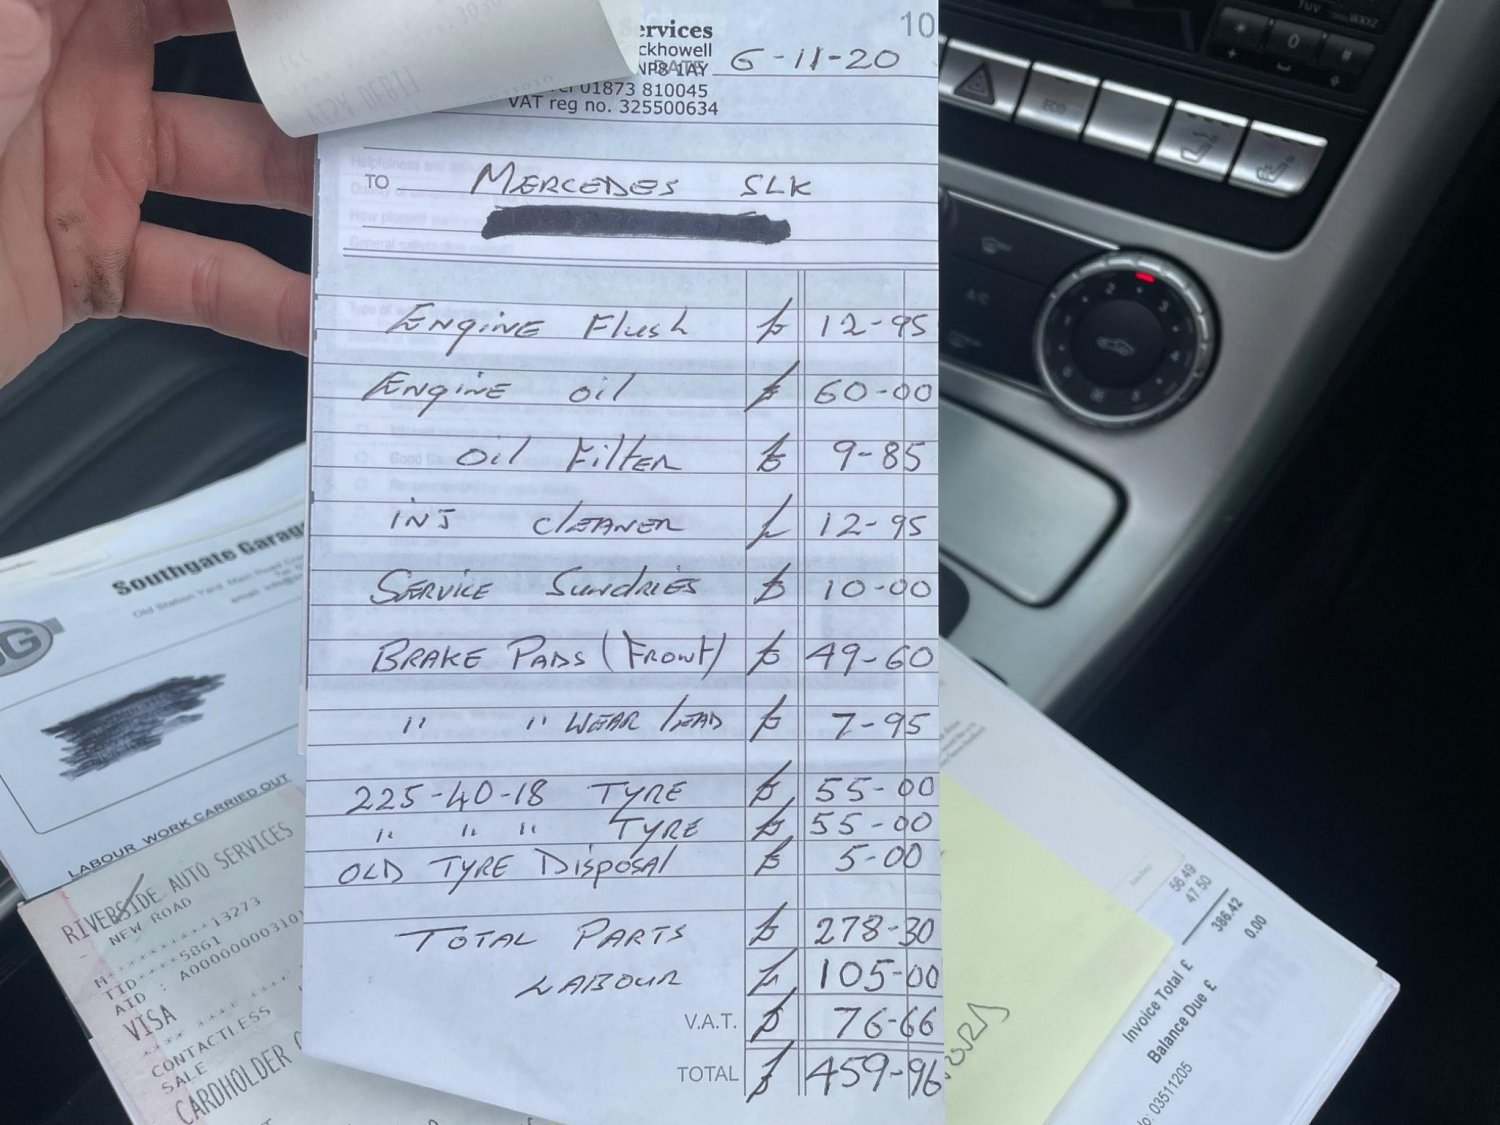 ervices
10
ckhowell
NP8 1AY
DATE 6-11-20
01873 810045
VAT reg no. 325500634
TO MERCEDES SLK
ENGINE Flush £ 12-95
ENGINE OIL £ 60-00
OIL FILTER £ 9-85
INJ CLEANER £ 12-95
SERVICE SUNDRIES £ 10-00
BRAKE PADS (FRONT) £ 49-60
" " WEAR LEAD £ 7-95
225-40-18 TYRE £ 55-00
" " " TYRE £ 55-00
OLD TYRE DISPOSAL £ 5-00
TOTAL PARTS £ 278-30
LABOUR £ 105-00
V.A.T. £ 76-66
TOTAL £ 459-96
Southgate Garag
Old Station Yard
LABOUR WORK CARRIED OUT
RIVERSIDE AUTO SERVICES
NEW ROAD
M**********13273
TID:****5861
AID : A00000003101
VISA
CONTACTLESS
SALE
CARDHOLDER
56.49
47.50
Invoice Total £ 386.42
Balance Due £ 0.00
03511205
VISA DEBIT
ECO
A/C
TUV
WXYZ
* 0 #
+